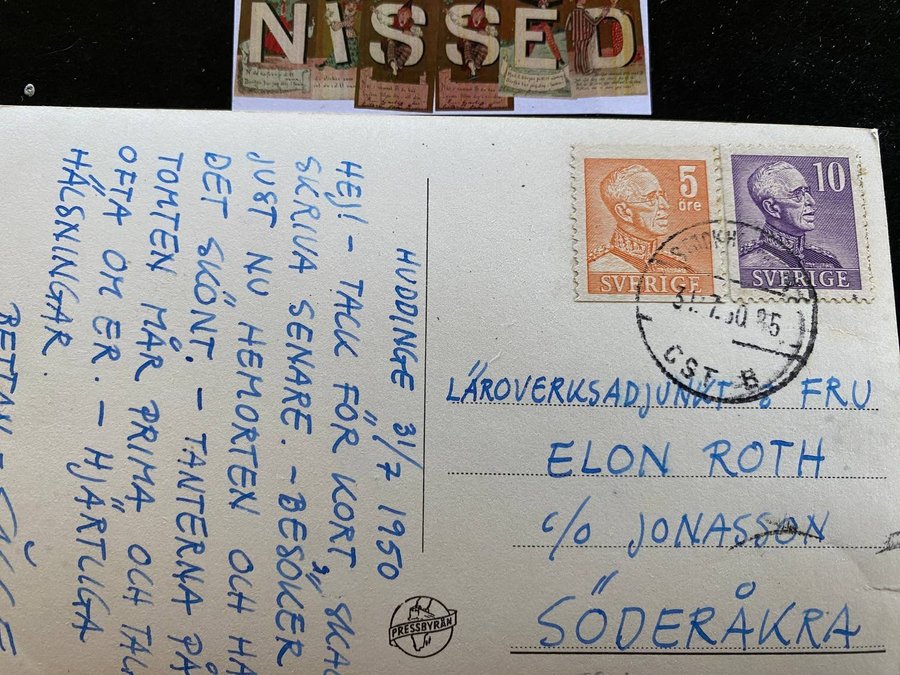 NISSED
HUDDINGE 31/7 1950
HEJ! - TACK FÖR KORT SKAL
SKRIVA SENARE. - BESÖKER
JUST NU HEMORTEN OCH HA
DET SKÖNT. - TANTERNA PÅ
TOMTEN MÅR PRIMA OCH TAL
OFTA OM ER. - HJÄRTLIGA
HÄLSNINGAR.
BETTAN
5
öre
SVERIGE
10
SVERIGE
31.7.50
CST B
LÄROVERKSADJUNKT & FRU
ELON ROTH
c/o JONASSON
SÖDERÅKRA
PRESSBYRÅN